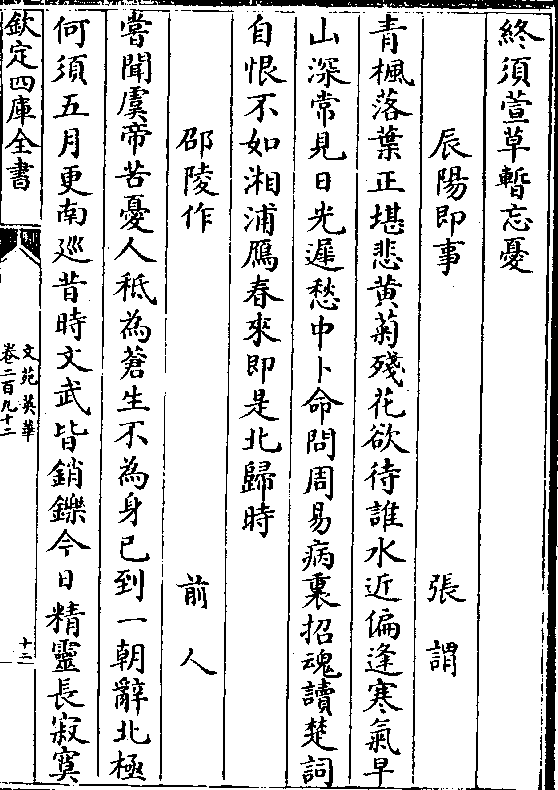 終須萱草暫忘憂
辰陽即事　張謂
青楓落葉正堪悲黄菊殘花欲待誰水近偏逢寒氣早
山深常見日光遲愁中卜命問周易病裏招魂讀楚詞
自恨不如湘浦鴈春來即是北歸時
邵陵作　前人
嘗聞虞帝苦憂人秪為蒼生不為身已到一朝辭北極
何須五月更南廵昔時文武皆銷鑠今日精靈長寂寞
欽定四庫全書
文苑英華
卷二百九十二
十二